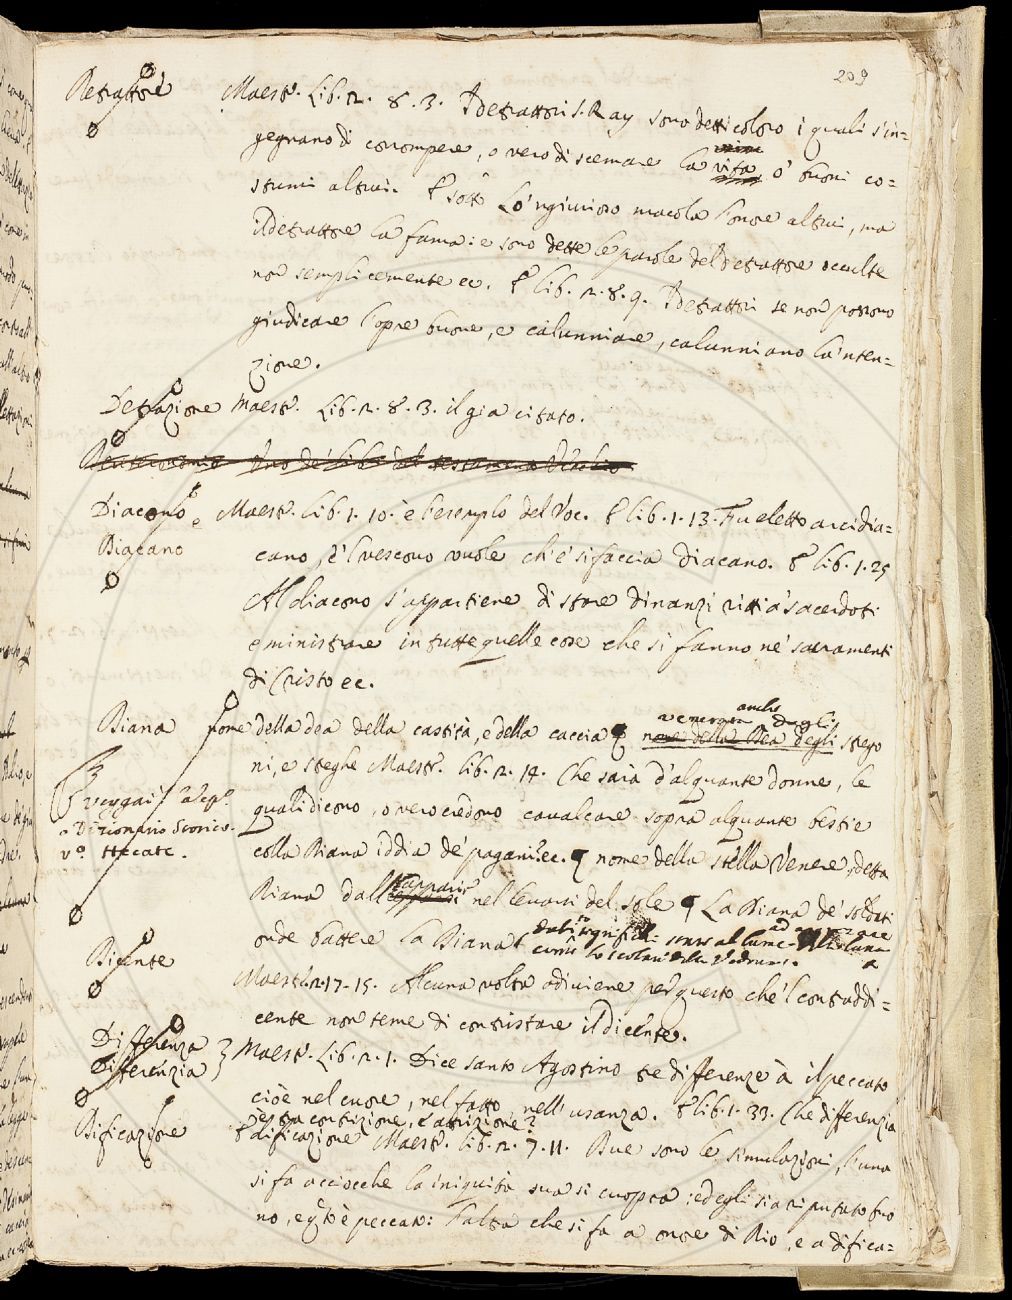 209
Detrattore Maestr. Lib. 2. 8. 3. I detrattori s. Ray sono detti coloro i quali s'in=
gegnano di corrompere, o vero di scemare la vita, o' buoni co=
stumi altrui. E sotto Lo 'ngiurioso macola l'onore altrui, ma
il detrattore la fama: e sono dette le parole del detrattore occulte
non semplicemente ec. E lib. 2. 8. 9. I detrattori se non possono
giudicare l'opre buone, e calunniare, calunniano la 'nten=
zione.
Detrazione Maestr. Lib. 2. 8. 3. il gia citato.
Deuteronomio Uno de' libri del testamento Vecchio
Diacono e Maestr. Lib. 1. 10. è l'esemplo del Voc. E lib. 1. 13. Fu eletto arcidia=
Diacano cano, e 'l vescovo vuole ch'e' si faccia diacano. E lib. 1. 25
Al diacono s'appartiene di stare dinanzi ritti a' sacerdoti
e ministrare in tutte quelle cose che si fanno ne' sacramenti
di Cristo ec.
anche
venerata dagli
Diana nome della dea della castità, e della caccia ¶ nome della Dea degli strego
ni, e streghe Maestr. lib. 2. 14. Che sarà d'alquante donne, le
veggasi
quali dicono, o vero credono cavalcare sopra alquante bestie
o Dizionario Storico.
vo. Hecate.
colla Diana iddia de' pagani? ec. ¶ nome della stella Venere, detta
Diana dall'apparir nel levarsi del sole ¶ La Diana de' soldati
onde battere la Diana
Dicente Maestr. 2. 17. 15. Alcuna volta adiviene per questo che 'l contraddi=
cente non teme di contristare il dicente.
Differenza
Differenzia Maestr. Lib. 2. 1. Dice santo Agostino tre differenze à il peccato
cioè nel cuore, nel fatto, nell'usanza. E lib. 1. 33. Che differenzia
è tra contrizione, e attrizione?
Dificazione E dificazione Maestr. lib. 2. 7. 11. Due sono le simulazioni, l'una
si fa acciocche la iniquità sua si cuopra: ed egli sia riputato buo
no, e questo è peccato: l'altra che si fa a onore di Dio, e a difica=